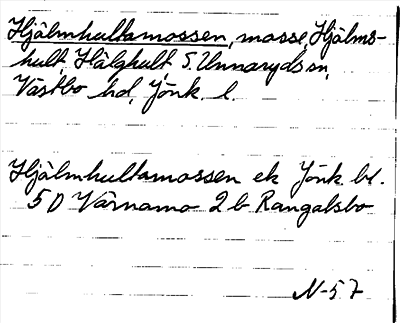 Hjälmhultamossen, mosse, Hjälms-
hult, Hälghult, S. Unnaryds sn,
Västbo hd, Jönk. l.
Hjälmhultamossen ek Jönk. bl.
5D Värnamo 2b Rangalsbo
N-57